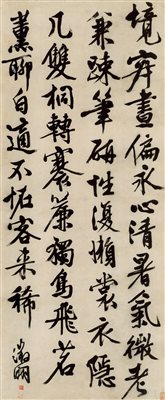 境晝偏永心清暑氣微老
兼疎筆硯性復懶裳衣隱
几雙桐轉褰簾獨鳥飛茗
薰聊自適不恠客來稀
徵明